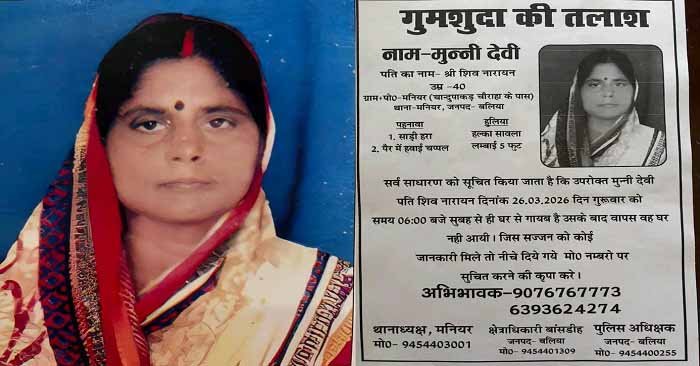 गुमशुदा की तलाश
नाम-मुन्नी देवी
पति का नाम- श्री शिव नारायन
उम्र -40
ग्राम+पो0-मनियर (चान्दुपाकड़ चौराहा के पास)
थाना-मनियर, जनपद- बलिया
पहनावा हुलिया
1. साड़ी हरा हल्का सावला
2. पैर में हवाई चप्पल लम्बाई 5 फुट
सर्व साधारण को सूचित किया जाता है कि उपरोक्त मुन्नी देवी
पति शिव नारायन दिनांक 26.03.2026 दिन गुरूवार को
समय 06:00 बजे सुबह से ही घर से गायब है उसके बाद वापस वह घर
नही आयी। जिस सज्जन को कोई
जानकारी मिले तो नीचे दिये गये मो0 नम्बरो पर
सुचित करने की कृपा करे।
अभिभावक-9076767773
6393624274
थानाध्यक्ष, मनियर
मो0- 9454403001
क्षेत्राधिकारी बांसडीह
जनपद- बलिया
मो0- 9454401309
पुलिस अधिक्षक
जनपद- बलिया
मो0- 9454400255